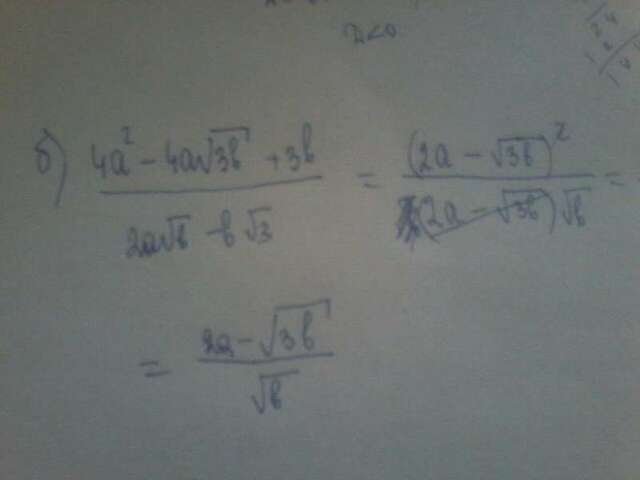 б) (4a² - 4a√3b + 3b)/(2a√b - b√3) = (2a - √3b)²/((2a - √3b)√b) =
= (2a - √3b)/√b